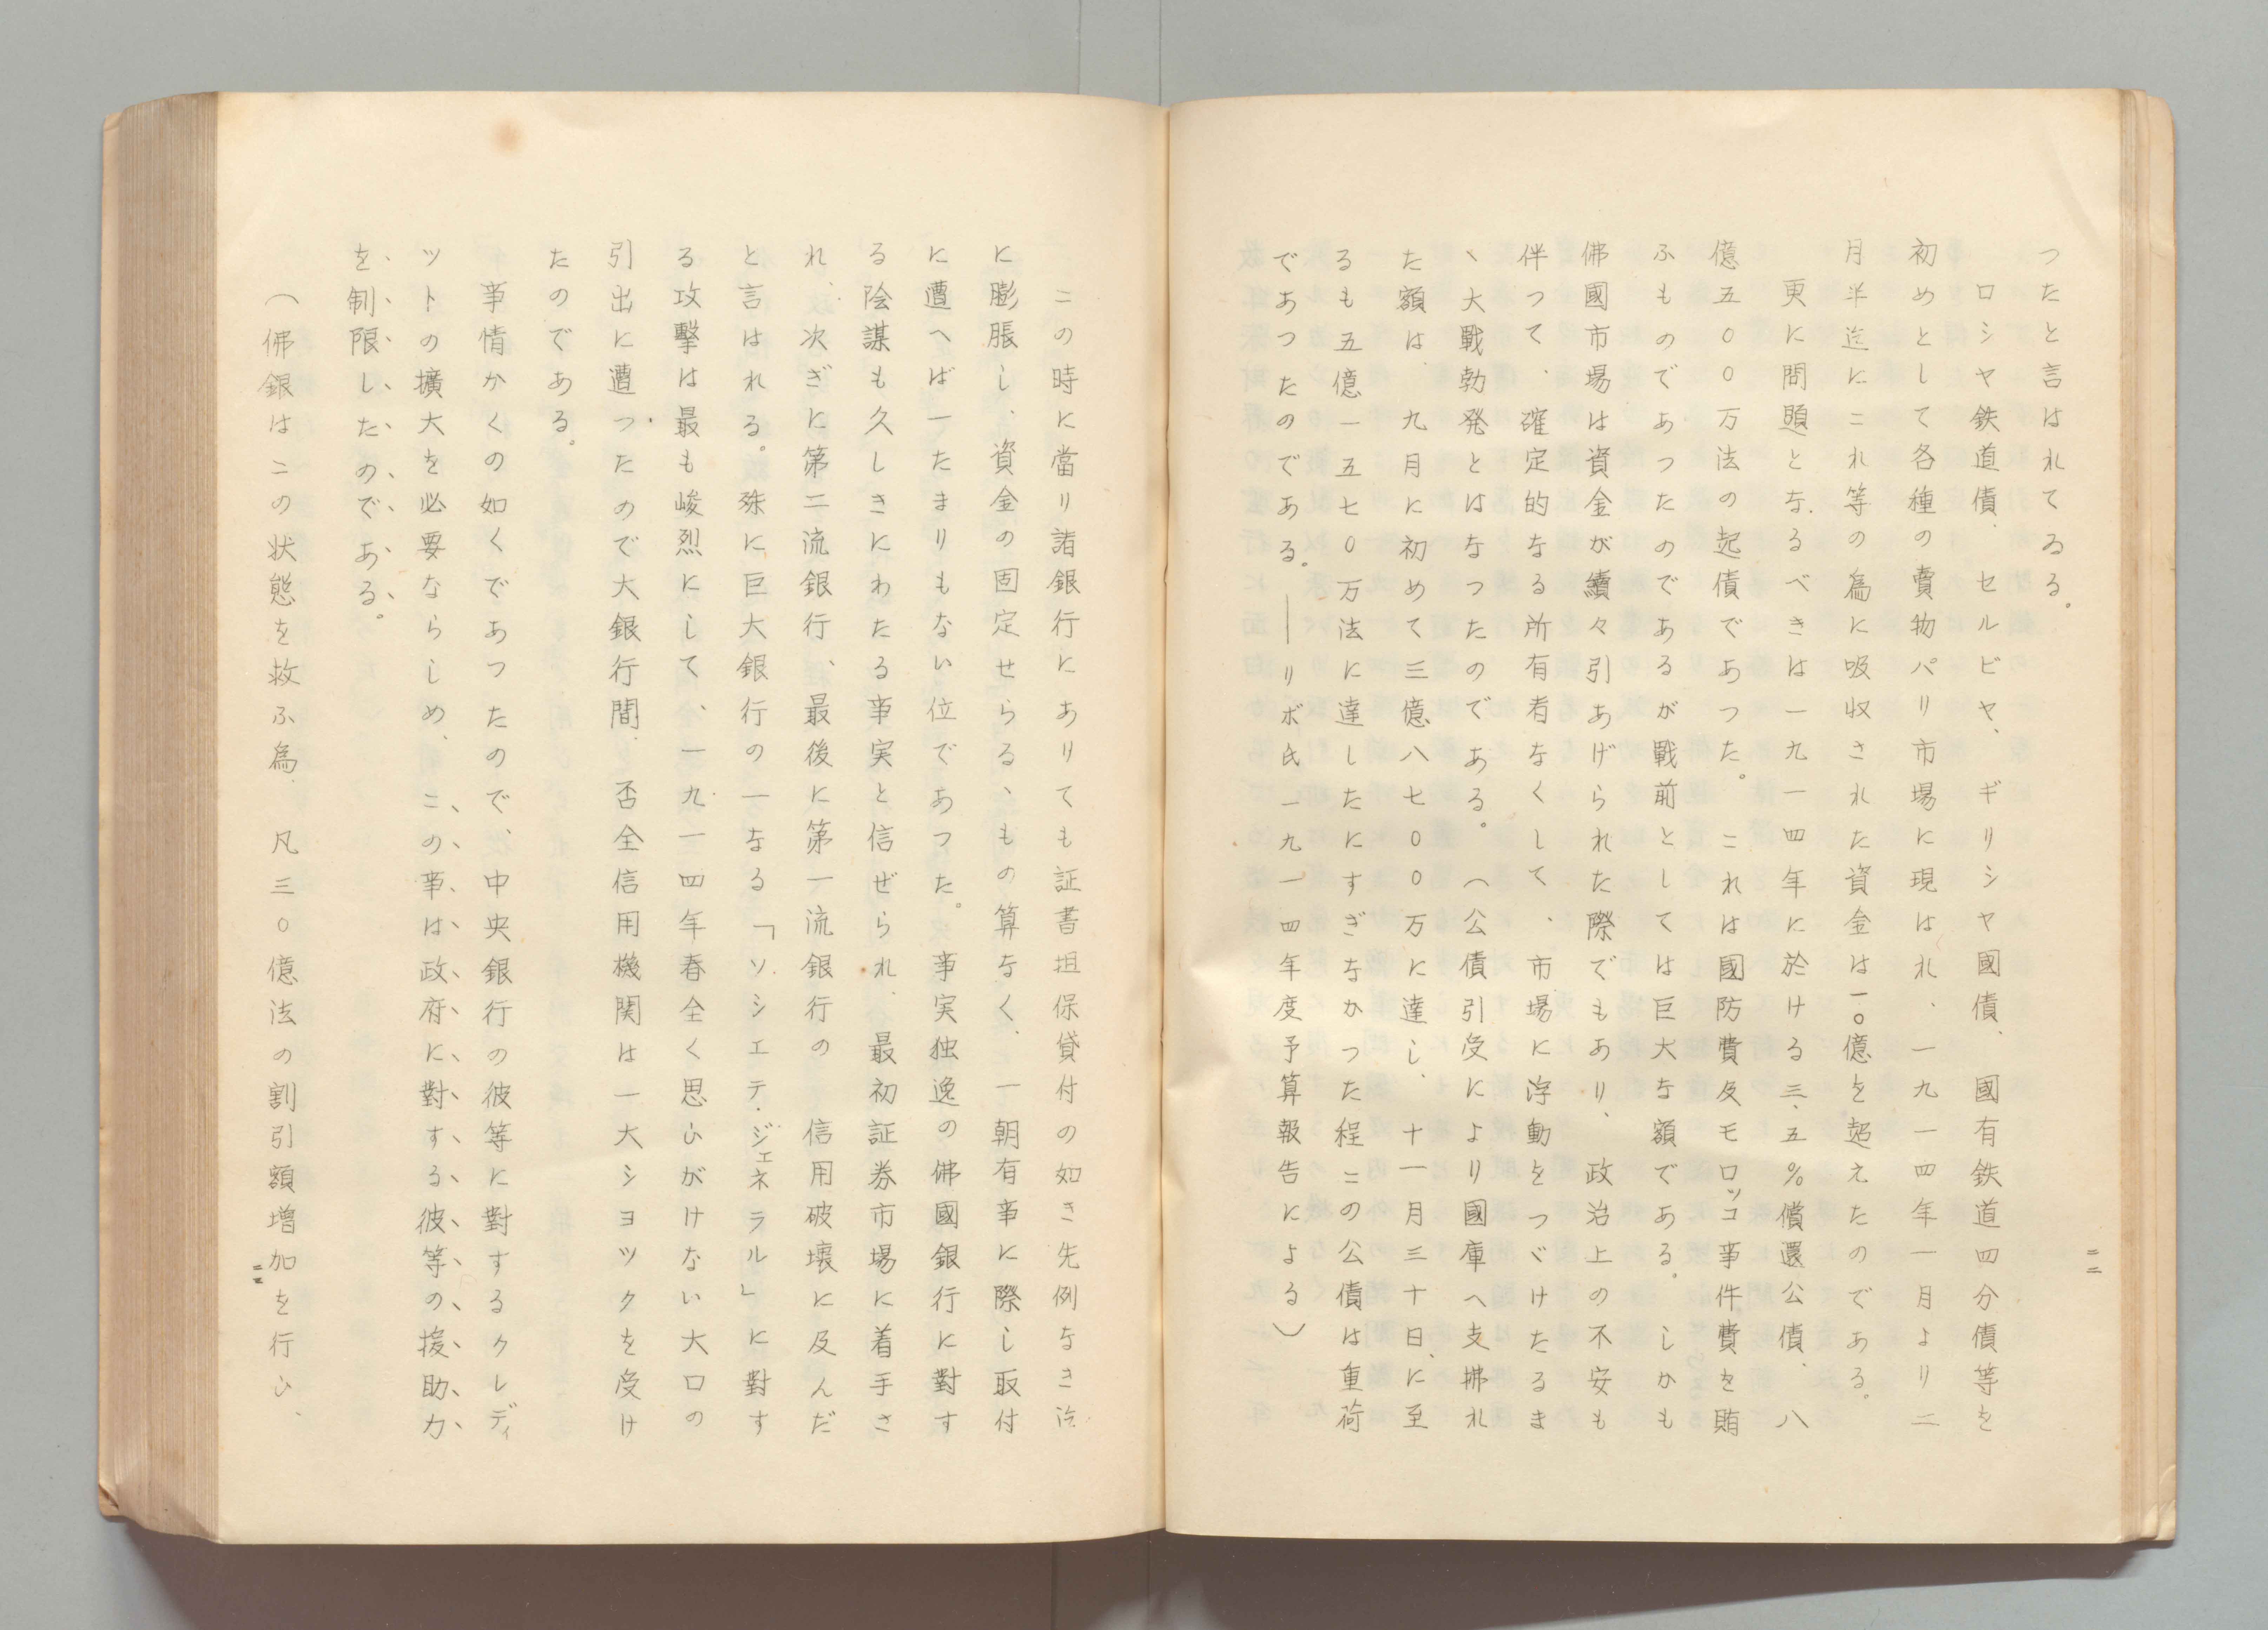 二二
つたと言はれてゐる。
ロシヤ鉄道債、セルビヤ、ギリシヤ國債、國有鉄道四分債等を
初めとして各種の賣物パリ市場に現はれ、一九一四年一月より二
月半迄にこれ等の為に吸収された資金は一〇億を超えたのである。
更に問題となるべきは一九一四年に於ける三、五％償還公債、八
億五〇〇万法の起債であつた。これは國防費及モロツコ事件費を賄
ふものであつたのであるが戰前としては巨大な額である。しかも
佛國市場は資金が續々引あげられた際でもあり、政治上の不安も
伴つて、確定的なる所有者なくして、市場に浮動をつゞけたるま
ゝ大戰勃発とはなつたのである。（公債引受により國庫へ支拂れ
た額は、九月に初めて三億八七〇〇万に達し、十一月三十日、に至
るも五億一五七〇万法に達したにすぎなかつた程この公債は重荷
であつたのである。――リボ氏一九一四年度予算報告による）
この時に當り諸銀行にありても証書担保貸付の如き先例なき迄
に膨脹し、資金の固定せらるゝもの算なく、一朝有事に際し取付
に遭へば一たまりもない位であつた。事実独逸の佛國銀行に對す
る陰謀も久しきにわたる事実と信ぜられ、最初証券市場に着手さ
れ、次ぎに第二流銀行、最後に第一流銀行の信用破壊に及んだ
と言はれる。殊に巨大銀行の一なる「ソシエテ・ジェネラル」に對す
る攻擊は最も峻烈にして、一九一四年春全く思ひがけない大口の
引出に遭つたので大銀行間、否全信用機関は一大シヨツクを受け
たのである。
事情かくの如くであつたので、中央銀行の彼等に對するクレディ
ツトの擴大を必要ならしめ、この事は政府に對する彼等の援助力
を制限したのである。
（佛銀はこの状態を救ふ為、凡三〇億法の割引額増加を行ひ、
二三